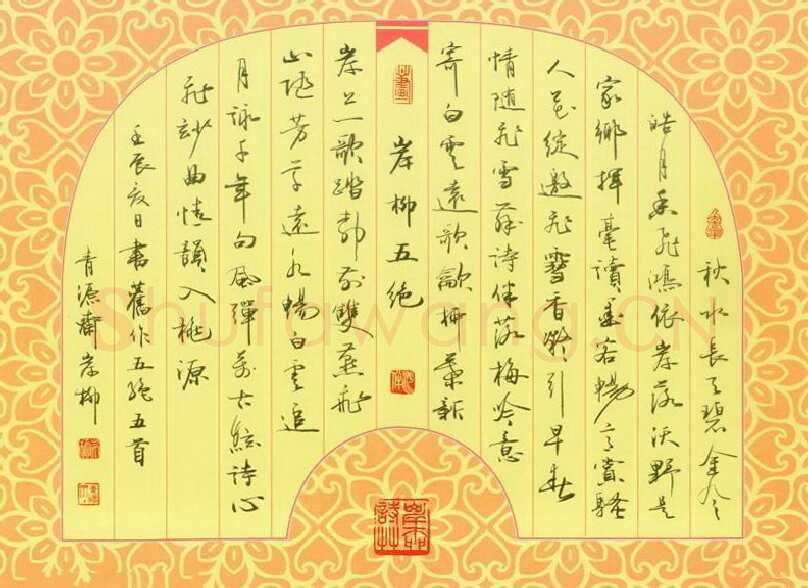 秋水長天碧金風
皓月香飛鴻依岸落沃野是
家鄉揮毫讀墨客暢言賞騷
人花綻邀飛雪香凝引早春
情隨飛雪舞詩伴落梅吟意
寄白雲遠歌新
岸柳五絕
岸上歌踏雙燕飛
山隨芳草遠水暢白雲追
月詠千年句風彈萬古絃詩心
飛妙曲情韻入桃源
壬辰日書舊作五絕五首
青源齋岸柳
Shufawang.CN